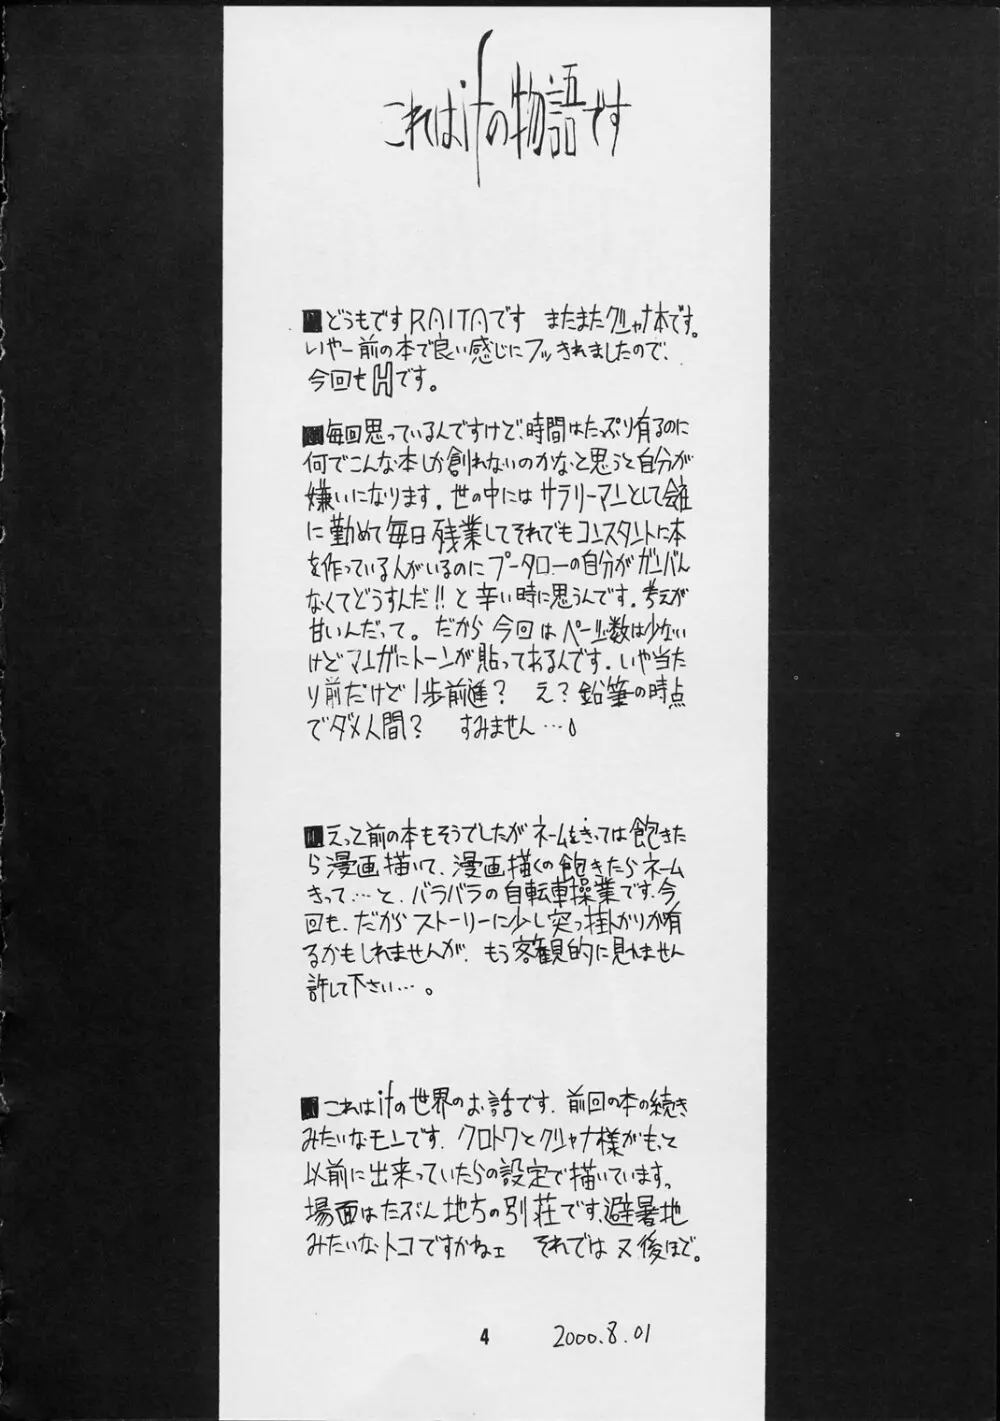 これはifの物語です
■どうもですRAITAです またまたクシャナ本です。
いやー前の本で良い感じにフッきれましたので、
今回もHです。
■毎回思っているんですけど、時間はたっぷり有るのに
何でこんな本しか創れないのかなと思うと自分が
嫌いになります。世の中にはサラリーマンとして会社
に勤めて毎日残業してそれでもコンスタントに本
を作っている人がいるのにプータローの自分がガンバん
なくてどうすんだ!!と辛い時に思うんです。考えが
甘いんだって。だから今回はページ数は少ないい
けどマンガにトーンが貼ってあるんです。いや当た
り前だけど1歩前進? え?鉛筆の時点
でダメ人間? すみません…。
■えっと前の本もそうでしたがネームをきっては飽きた
ら漫画描いて、漫画描くの飽きたらネーム
きって…と、バラバラの自転車操業です。今
回も、だからストーリーに少し突っ掛かりが有
るかもしれませんが、もう客観的に見れません
許して下さい…。
■これはifの世界のお話です。前回の本の続き
みたいなモンです。クロトワとクシャナ様がもっと
以前に出来っていたらの設定で描いています。
場面はたぶん地方の別荘です、避暑地
みたいなトコですかねェ それでは又後ほど。
4 2000.8.01